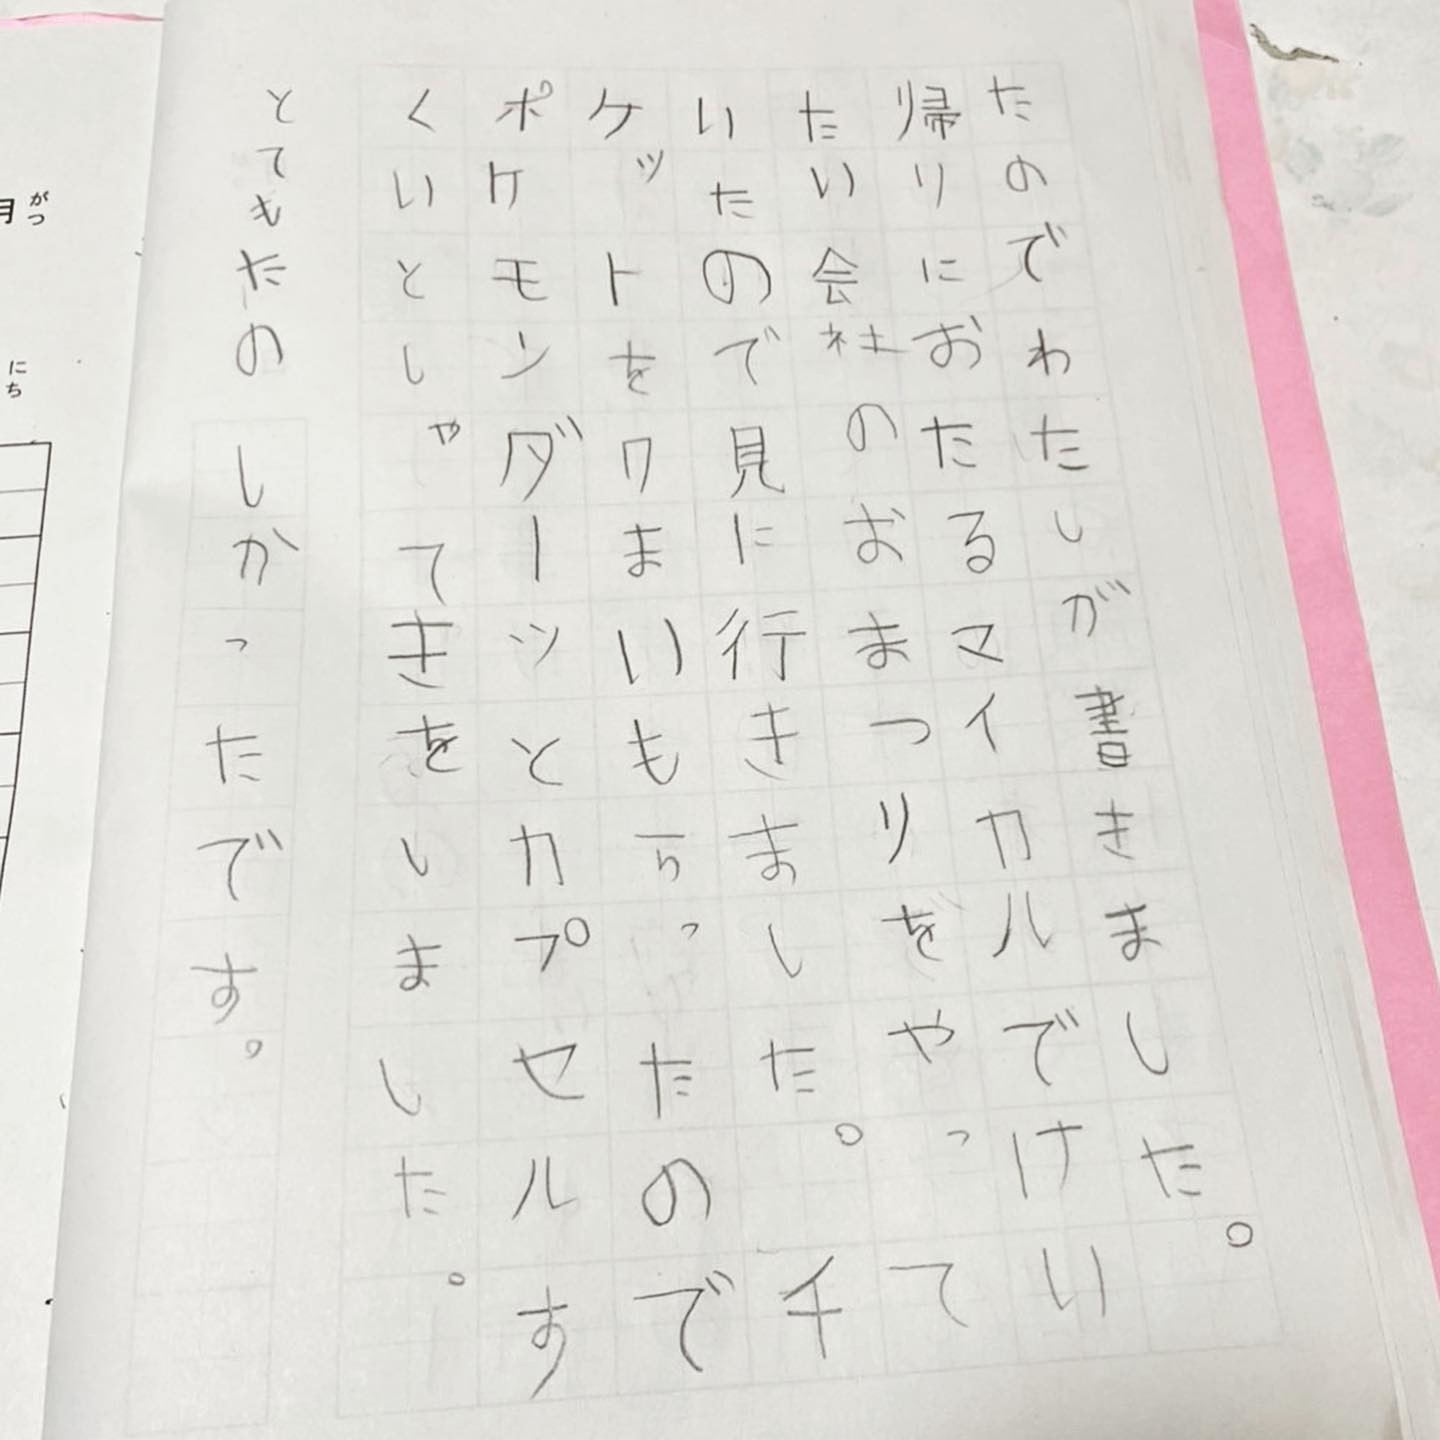 たのでわたしが書きました。
帰りにおたるマイカルでけい
たい会社のおまつりをやって
いたので見に行きました。チ
ケットをワまいもらったので
ポケモンダーツとカプセルす
くいとしゃてきをしました。
とてもたのしかったです。
月
がつ
にち